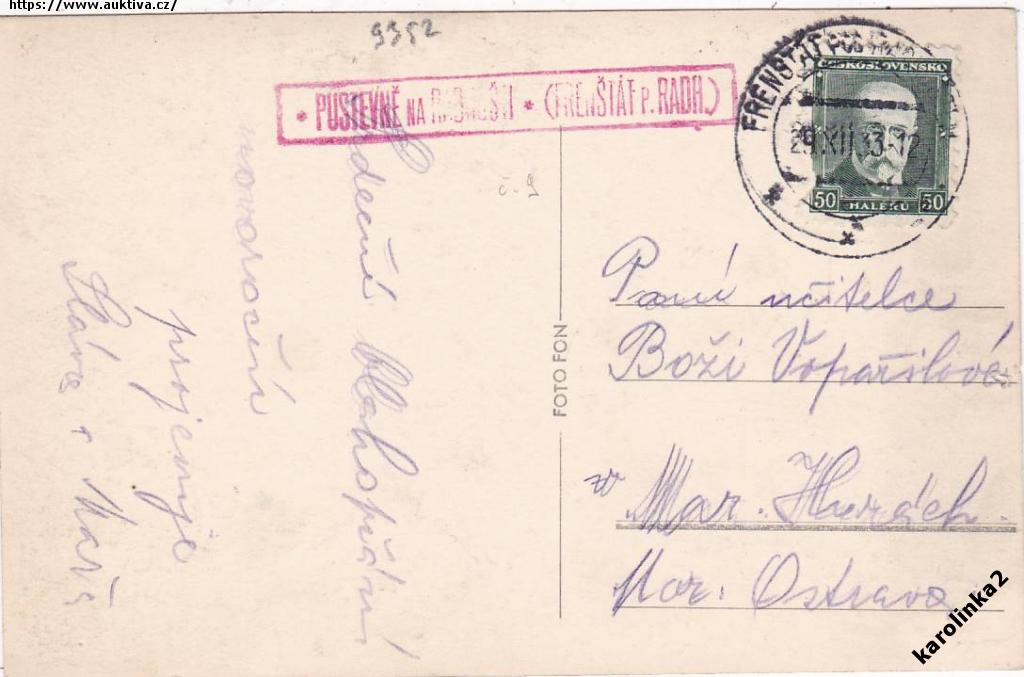 https://www.auktiva.cz/
9352
* PUSTEVNĚ NA RADHOŠTI * (FRENŠTÁT P. RADH.)
FRENŠTÁT POD
29.XII.33-12
ČESKOSLOVENSKO
50 HALÉŘŮ 50
č. 9
Srdečné blahopřání
novoroční
projevuje
Sláva + Máňa
FOTO FON
Paní učitelce
Boži Vopařilové
v Mar. Horách
Mor. Ostrava
karolinka2